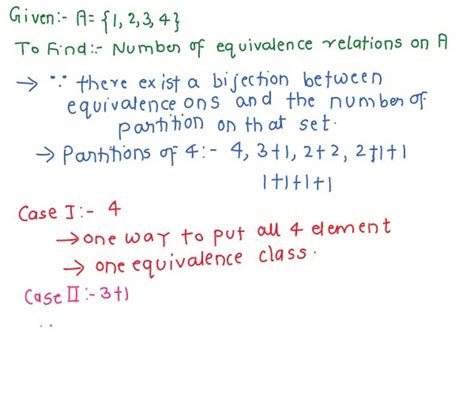 Given:- A= {1,2,3,4}
To Find:- Number of equivalence relations on A
→ ∵ there exist a bijection between
equivalence ons and the number of
partition on that set.
→ Partitions of 4:- 4, 3+1, 2+2, 2+1+1
1+1+1+1
Case I:- 4
→ one way to put all 4 element
→ one equivalence class.
Case II:- 3+1
..